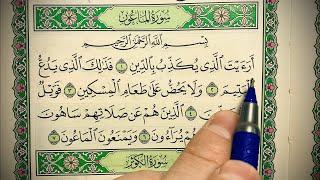 سُورَةُ المَاعُونِ
بِسْمِ اللَّهِ الرَّحْمَٰنِ الرَّحِيمِ
أَرَءَيْتَ الَّذِي يُكَذِّبُ بِالدِّينِ ① فَذَٰلِكَ الَّذِي يَدُعُّ
الْيَتِيمَ ② وَلَا يَحُضُّ عَلَىٰ طَعَامِ الْمِسْكِينِ ③ فَوَيْلٌ
④ الَّذِينَ هُمْ عَن صَلَاتِهِمْ سَاهُونَ
هُمْ يُرَاءُونَ ⑥ وَيَمْنَعُونَ الْمَاعُونَ ⑦
سُورَةُ الكَوْثَرِ